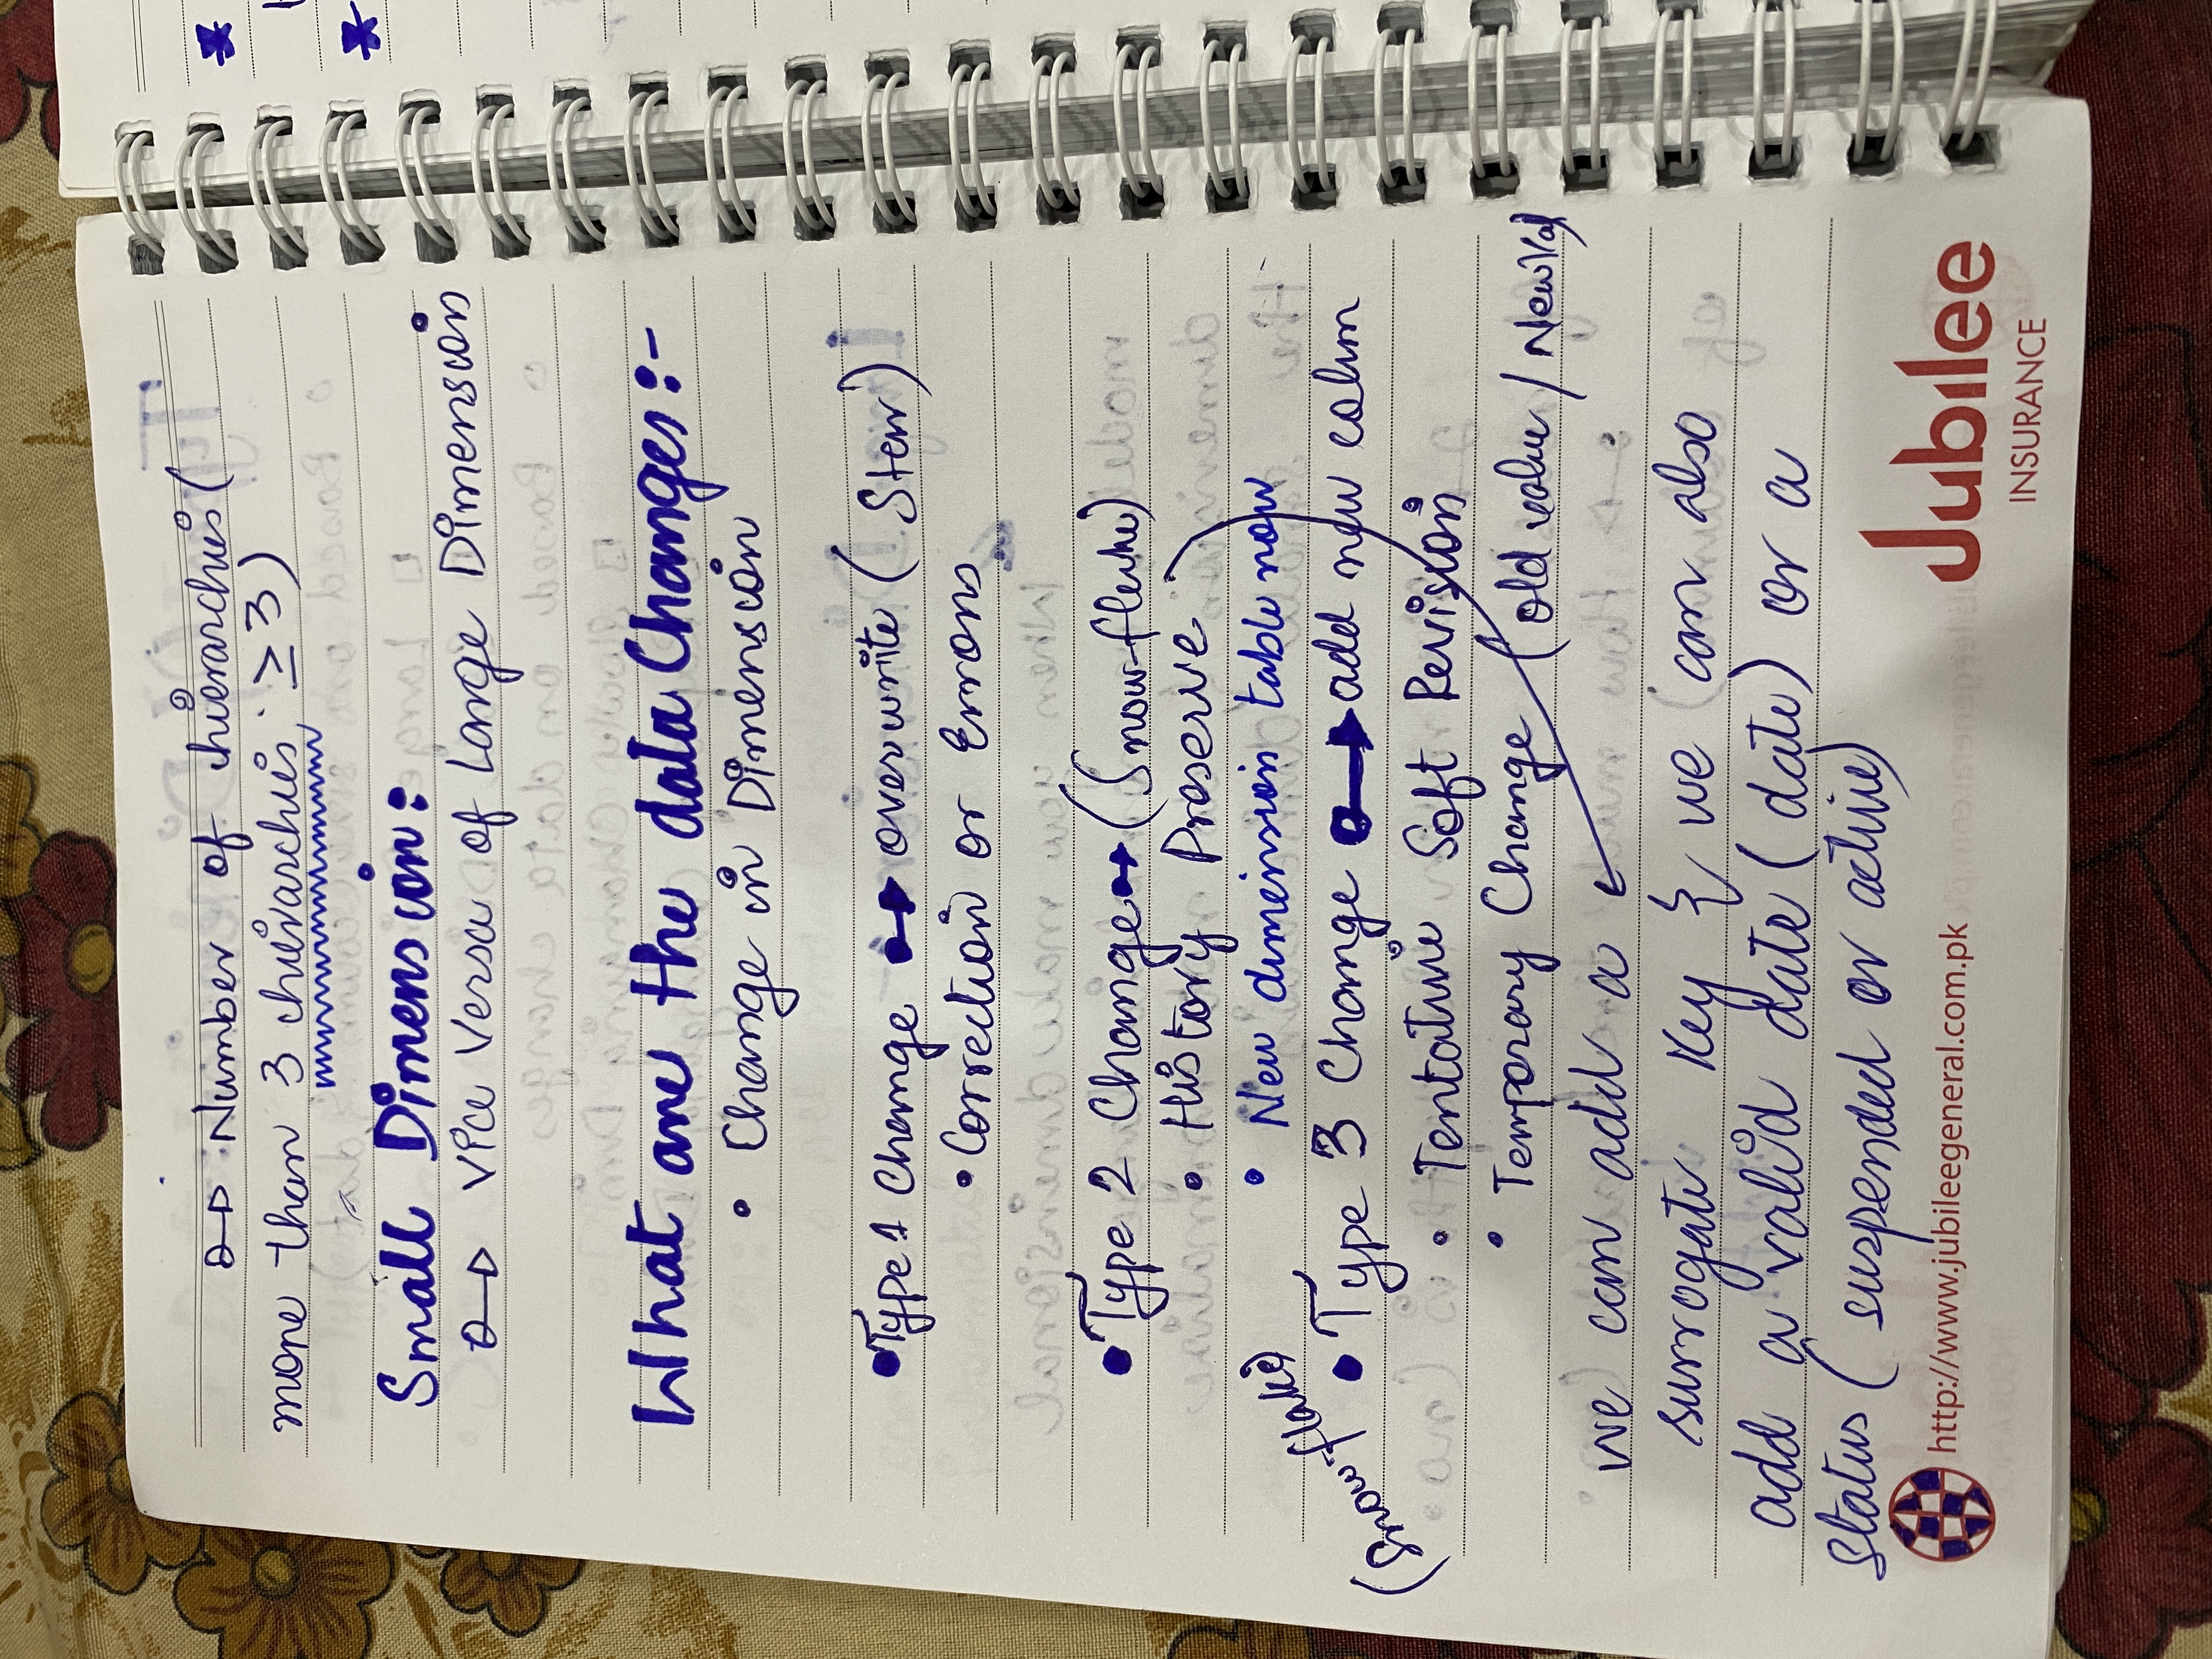 Number of hierarchies (
more than 3 hierarchies, ≥3)
Small Dimension:
Vice Versa of Large Dimension
What are the data Changes:-
• Change in Dimension
• Type 1 Change → overwrite (Star)
• Correction or Errors
• Type 2 Change → (Snow-flake)
• History Preserve
• New dimension table now
(Snow-flake)
• Type 3 Change → add new colum
• Tentative Soft Revision
• Temporary Change (old value / New Val)
we can add a
surrogate key & we can also
add a valid date (date) or a
status (suspended or active)
http://www.jubileegeneral.com.pk
Jubilee
INSURANCE